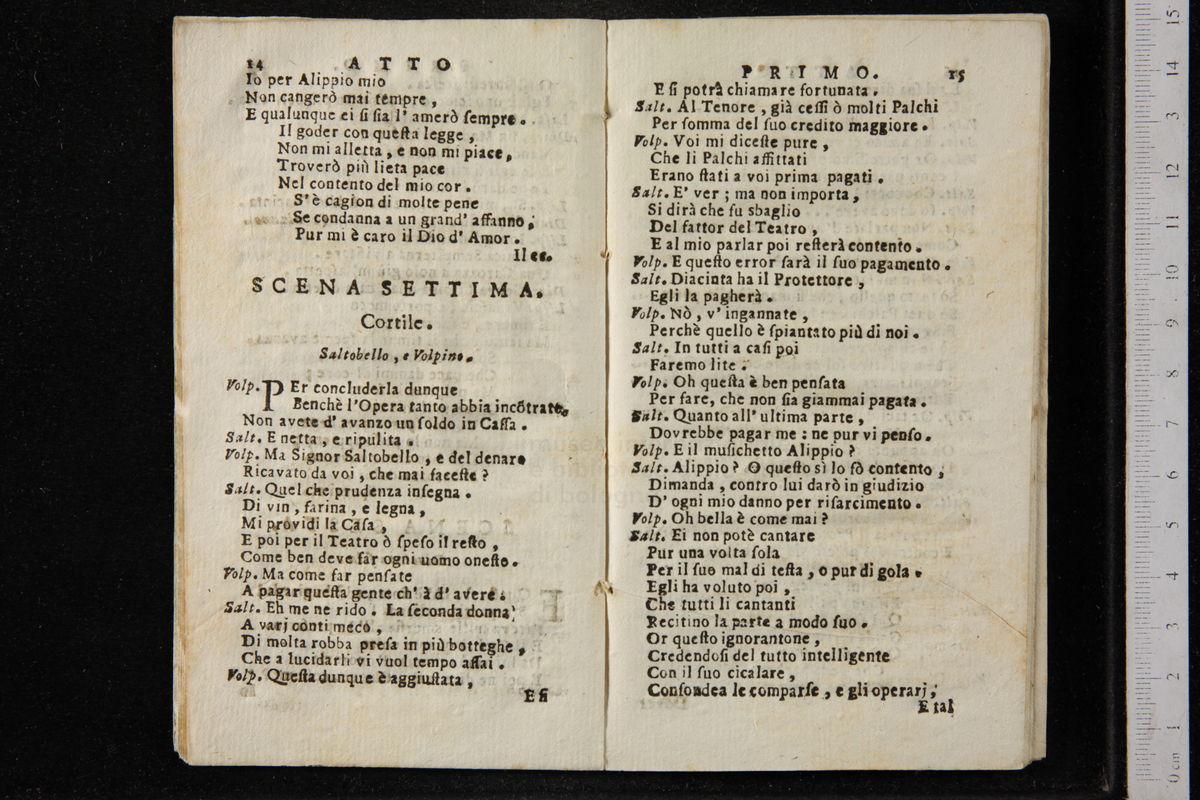 14 ATTO
Io per Alippio mio
Non cangerò mai tempre,
E qualunque ei si sia l'amerò sempre.
Il goder con questa legge,
Non mi alletta, e non mi piace,
Troverò più lieta pace
Nel contento del mio cor.
S'è cagion di molte pene
Se condanna a un grand' affanno,
Pur mi è caro il Dio d'Amor.
Il ec.
SCENA SETTIMA.
Cortile.
Saltobello, e Volpino.
Volp. PEr concluderla dunque
Benchè l'Opera tanto abbia incõtrato,
Non avete d'avanzo un soldo in Cassa.
Salt. E netta, e ripulita.
Volp. Ma Signor Saltobello, e del denaro
Ricavato da voi, che mai faceste?
Salt. Quel che prudenza insegna.
Di vin, farina, e legna,
Mi providi la Casa,
E poi per il Teatro ò speso il resto,
Come ben deve far ogni uomo onesto.
Volp. Ma come far pensate
A pagar questa gente ch' à d'avere.
Salt. Eh me ne rido. La seconda donna,
A varj conti meco,
Di molta robba presa in più botteghe,
Che a lucidarli vi vuol tempo assai.
Volp. Questa dunque è aggiustata,
E si
PRIMO. 15
E si potrà chiamare fortunata.
Salt. Al Tenore, già cessi ò molti Palchi
Per somma del suo credito maggiore.
Volp. Voi mi diceste pure,
Che li Palchi affittati
Erano stati a voi prima pagati.
Salt. E' ver; ma non importa,
Si dirà che fu sbaglio
Del fattor del Teatro,
E al mio parlar poi resterà contento.
Volp. E questo error sarà il suo pagamento.
Salt. Diacinta ha il Protettore,
Egli la pagherà.
Volp. Nò, v'ingannate,
Perchè quello è spiantato più di noi.
Salt. In tutti a casi poi
Faremo lite.
Volp. Oh questa è ben pensata
Per fare, che non sia giammai pagata.
Salt. Quanto all'ultima parte,
Dovrebbe pagar me: ne pur vi penso.
Volp. E il musichetto Alippio?
Salt. Alippio? O questo sì lo fò contento;
Dimanda, contro lui darò in giudizio
D'ogni mio danno per risarcimento.
Volp. Oh bella è come mai?
Salt. Ei non potè cantare
Pur una volta sola
Per il suo mal di testa, o pur di gola.
Egli ha voluto poi,
Che tutti li cantanti
Recitino la parte a modo suo.
Or questo ignorantone,
Credendosi del tutto intelligente
Con il suo cicalare,
Confondea le comparse, e gli operarj,
E tal
15
14
13
12
11
10
9
8
7
6
5
4
3
2
1
0 cm